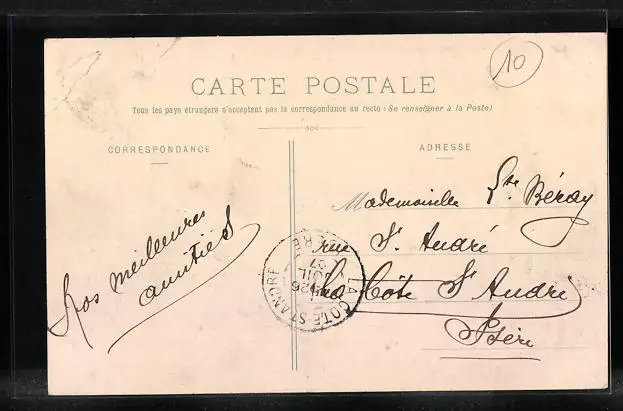 10
CARTE POSTALE
Tous les pays étrangers n'acceptent pas la correspondance au recto (Se renseigner à la Poste)
CORRESPONDANCE
ADRESSE
Nos meilleures
amitiés
Mademoiselle Béray
rue St. André
La Côte St André
Isère
LA COTE ST ANDRE
ISERE